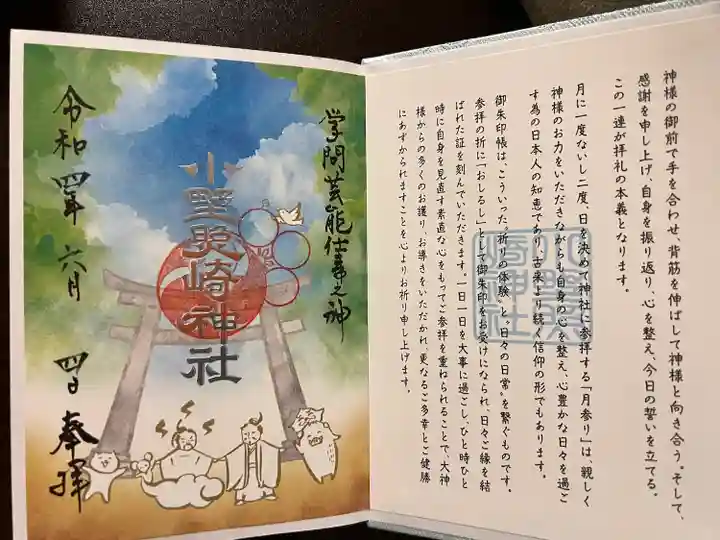 神様の御前で手を合わせ、背筋を伸ばして神様と向き合う。そして、
感謝を申し上げ、自身を振り返り、心を整え、今日の誓いを立てる。
この一連が拝礼の本義となります。
月に一度ないし二度、日を決めて神社に参拝する「月参り」は、親しく
神様のお力をいただきながらも自身の心を整え、心豊かな日々を過ご
す為の日本人の知恵であり、古来より続く信仰の形でもあります。
御朱印帳は、こういった〝祈りの体験〟と〝日々の日常〟を繋ぐものです。
参拝の折に「おしるし」として御朱印をお受けになられ、日々ご縁を結
ばれた証を刻んでいただきます。一日一日を大事に過ごし、ひと時ひと
時に自身を見直す素直な心をもってご参拝を重ねられることで、大神
様からの多くのお護り、お導きをいただかれ、更なるご多幸とご健勝
にあずかられますことを心よりお祈り申し上げます。
学問芸能仕事之神
小野照崎神社
令和四年六月
奉拝